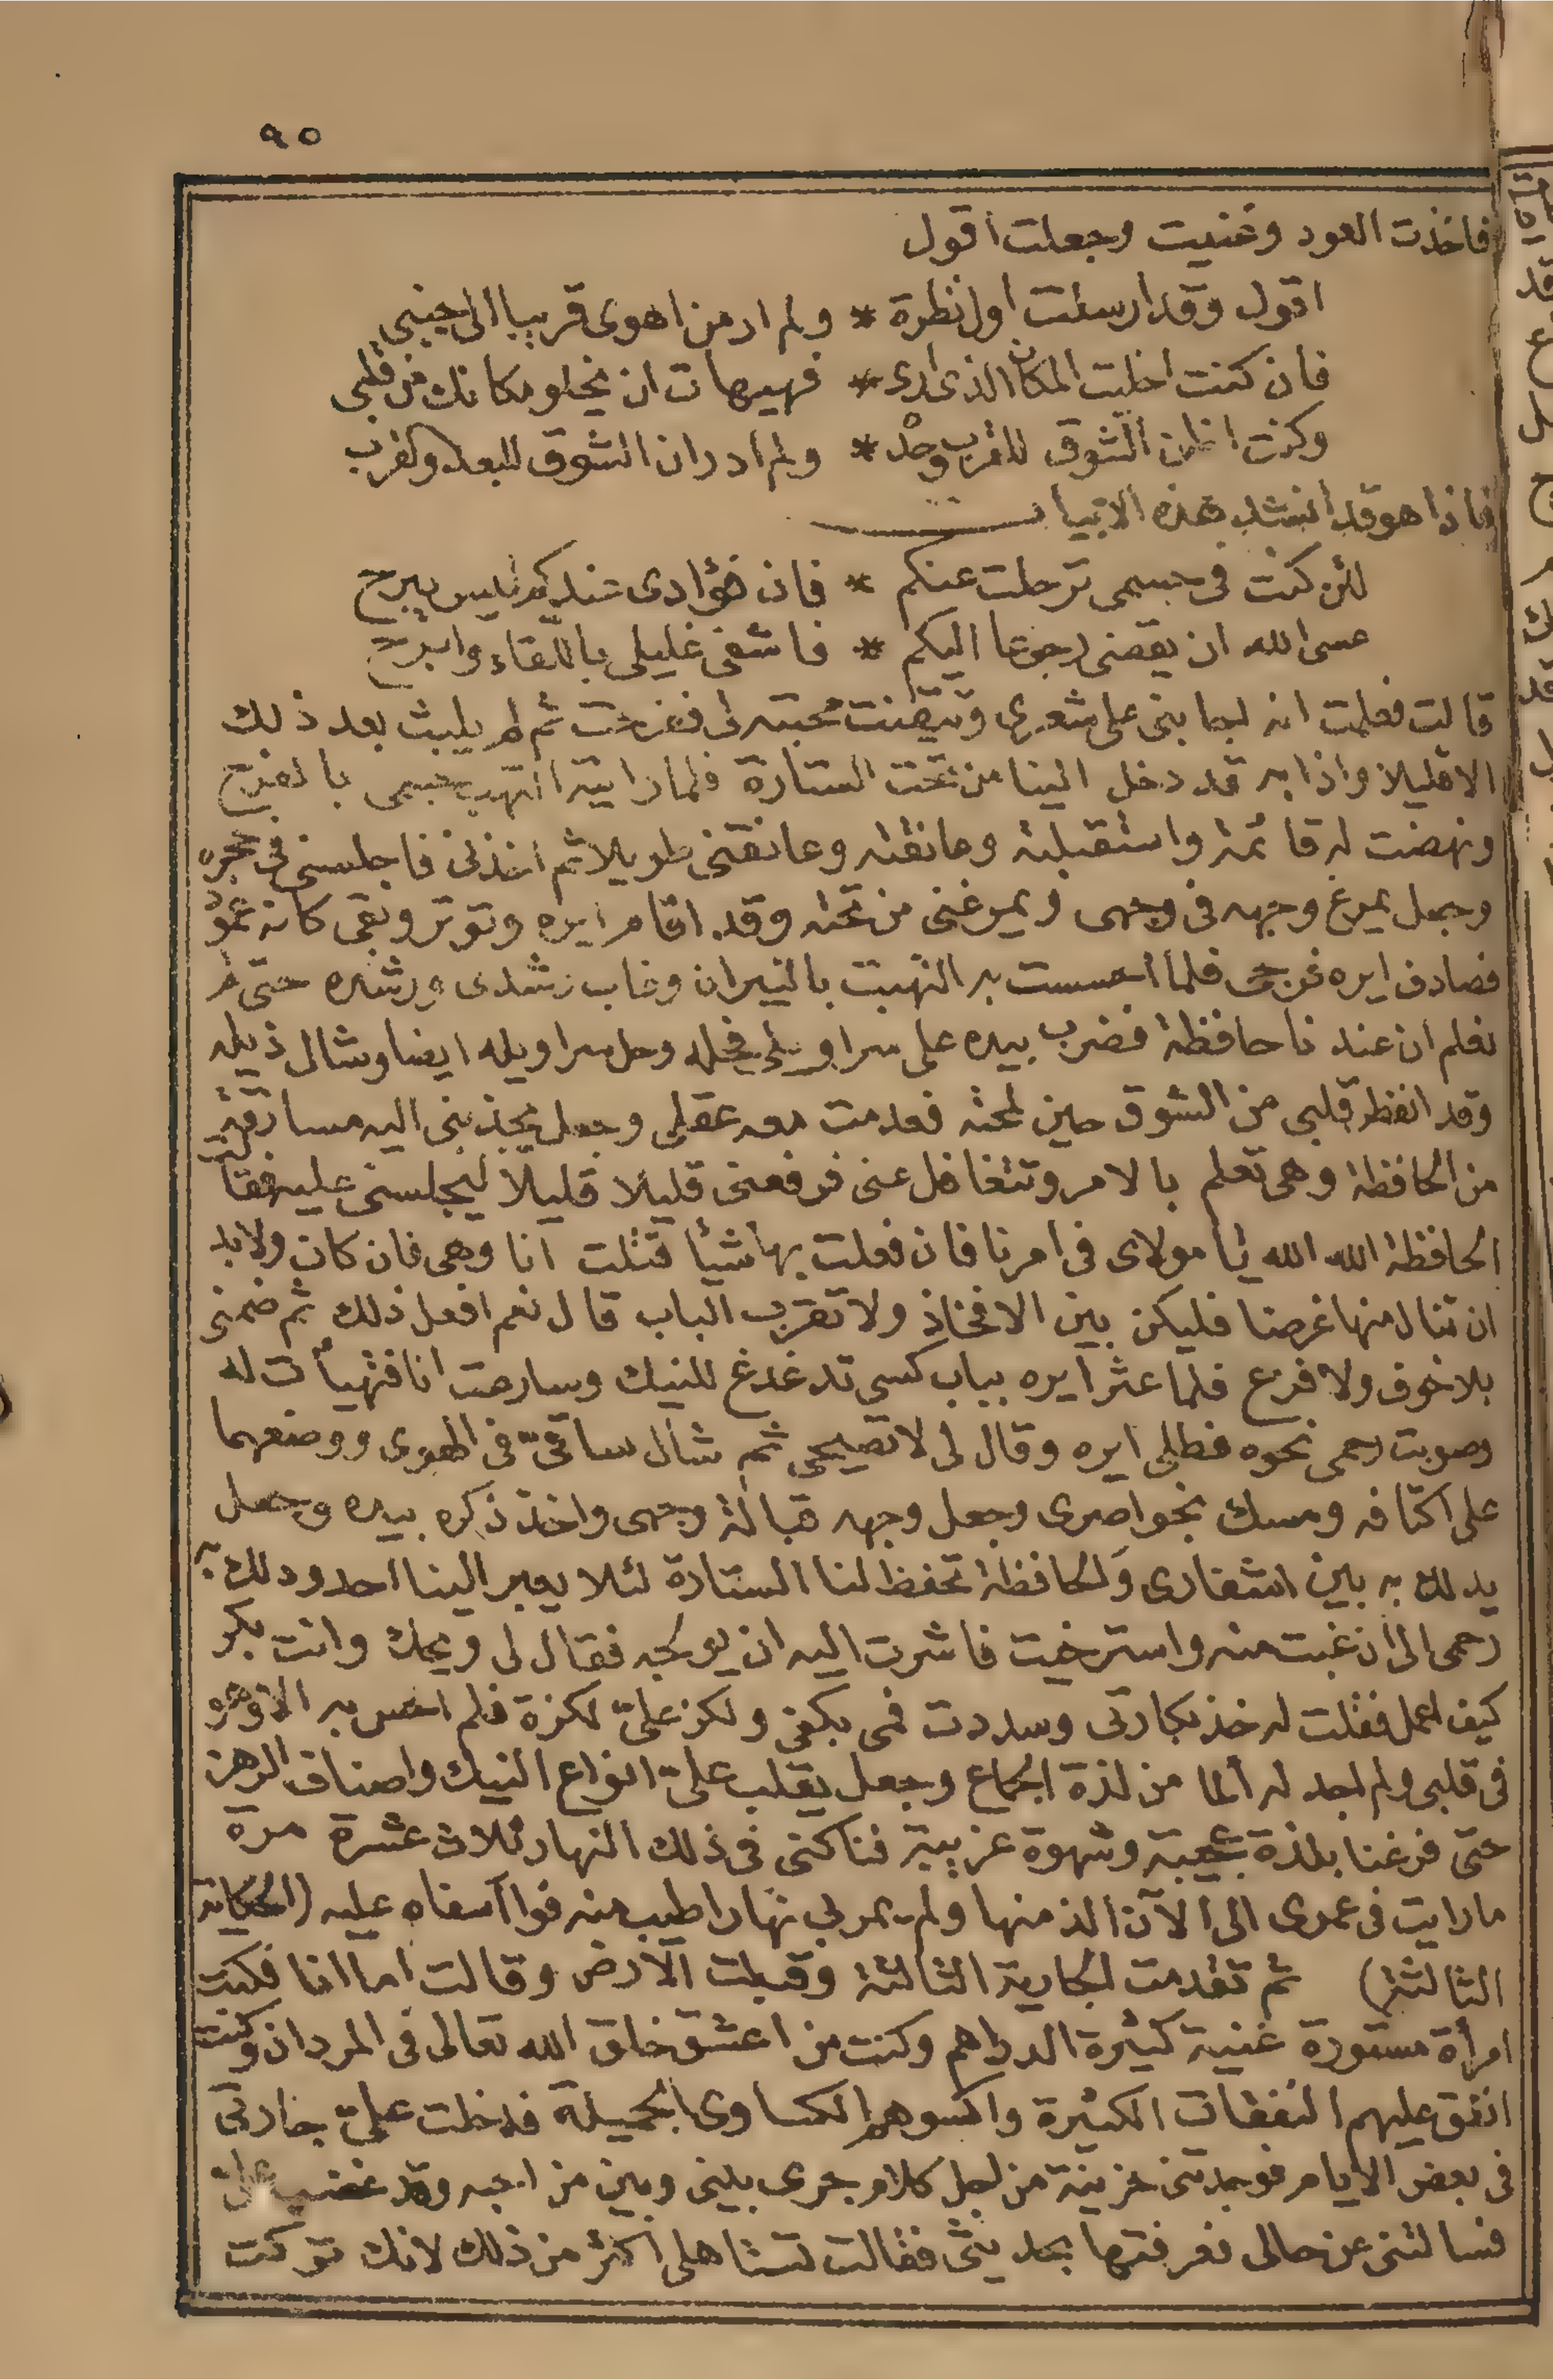 ٩٥
فاخذت العود وغنيت وجعلت اقول
اقول وقد ارسلت اول نظرة * ولم ار من اهوى قريبا الى جنبى
فان كنت اخليت المكان الذى ارى * فهيهات ان يخلو مكانك من قلبى
وكنت اظن الشوق للقرب وحده * ولم ادر ان الشوق للبعد والقرب
فاذا هو قد انشد بهذه الابيات
لئن كنت فى جسمى ترحلت عنكم * فان فؤادى عندكم ليس يبرح
عسى الله ان يقضى رجوعا اليكم * فاشفى غليلى باللقاء وابرح
قالت فعلمت انه لجا بنى على شعرى وتيقنت محبته لى ففرحت ثم لم يلبث بعد ذلك
الا قليلا واذا به قد دخل الينا من تحت الستارة فلما رايته التهب جسمى بالفرح
ونهضت له قائمة واستقبلته وعانقته وعانقنى طويلا ثم اخذنى فاجلسنى فى حجره
وجعل يمرغ وجهه فى وجهى ويمرغنى من تحته وقد اقام ايره وتوتر وبقى كانه عمود
فصادف ايره فرجى فلما احسست به التهبت بالنيران وغاب رشدى ورشده حتى لم
نعلم ان عندنا حافظة فضرب بيده على سراويلى فحله وحل سراويله ايضا وشال ذيله
وقد انفطر قلبى من الشوق حين لمحته فعدمت معه عقلى وجعل يجذبنى اليه مسارقة
من الحافظة وهى تعلم بالامر وتتغافل عنى فرفعنى قليلا قليلا ليجلسنى عليه فقالت
الحافظة الله الله يا مولاى فى امرنا فان فعلت بها شيأ قتلت انا وهى فان كان ولا بد
ان تنال منها غرضا فليكن بين الافخاذ ولا تقرب الباب قال نعم افعل ذلك ثم ضمنى
بلا خوف ولا فزع فلما عثر ايره بباب كسى تدغدغ للنيك وسارعت انا فتهيأت له
وصوبت رحمى نحوه فطلى ايره وقال لى لا تصيحى ثم شال ساقىّ فى الهوى ووضعهما
على اكتافه ومسك بخواصرى وجعل وجهه قبالة وجهى واخذ ذكره بيده وجعل
يدلك به بين اشفارى والحافظة تحفظ لنا الستارة لئلا يعبر الينا احد ودلك به
رحمى الى ان غبت منه واسترخيت فاشرت اليه ان يولجه فقال لى ويحك وانت بكر
كيف اعمل فقلت له خذ بكارتى وسددت فمى بكفى ولكز علىّ لكزة فلم احس به الا وهو
فى قلبى ولم اجد له ألما من لذة الجماع وجعل يقلب علىّ انواع النيك واصناف الرهز
حتى فرغنا بلذة عجيبة وشهوة غريبة فناكنى فى ذلك النهار ثلاث عشرة مرة
ما رايت فى عمرى الى الآن الذ منها ولم يمر بى نهار اطيب منه فوا آسفاه عليه (الحكاية
الثالثة) ثم تقدمت الجارية الثالثة وقبلت الارض وقالت اما انا فكنت
امرأة مستورة غنية كثيرة الدراهم وكنت من اعشق خلق الله تعالى فى المردان وكنت
انفق عليهم النفقات الكثيرة واكسوهم الكساوى الجميلة فدخلت علىّ جارتى
فى بعض الايام فوجدتنى حزينة من اجل كلام جرى بينى وبين من احبه وقد غضب علىّ
فسالتنى عن حالى فعرفتها بحديثى فقالت تستاهلى اكثر من ذلك لانك تركت